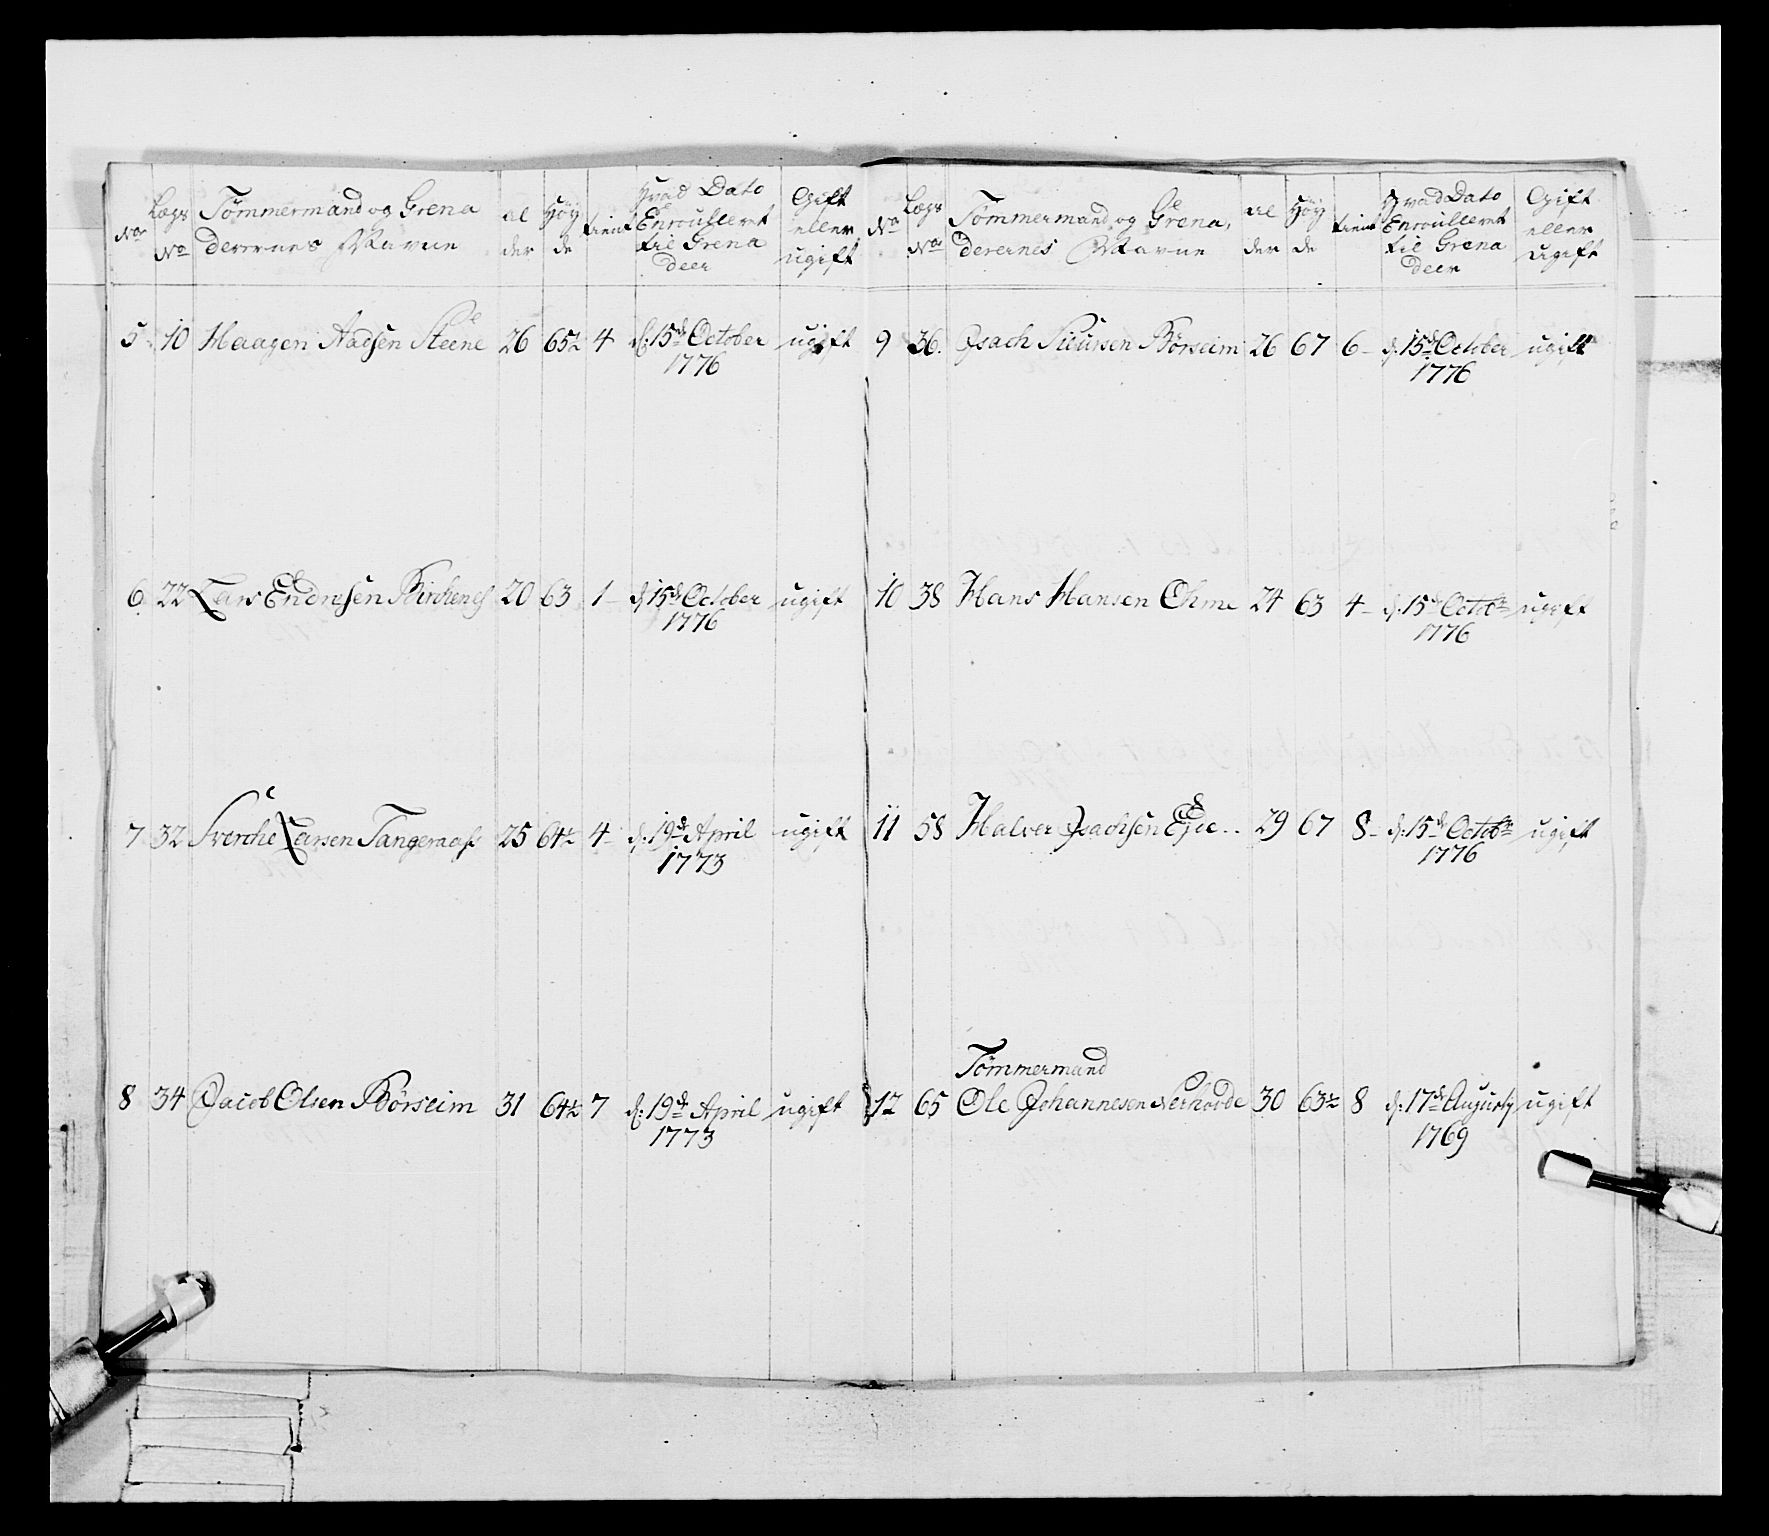 No Lægs No Tømmermand og Grenaderernes Navne Alder Høyde tient Hvad Dato Enroulleret til Grenadeer Gift eller ugift
5 10 Haagen Aadsen Steene 26 65½ 4 d: 15de October ugift
1776
6. 22 Lars Endresen Birchenes 20 63 1 d: 15de October ugift
1776
7 32 Sverche Larsen Tangeraas 25 64½ 4 d: 19de April ugift
1773
8 34 Jacob Olsen Børseim 31 64½ 7 d: 19de April ugift
1773
No Lægs No Tømmermand og Grenaderernes Navne Alder Høyde tient Hvad Dato Enroulleret til Grenadeer Gift eller ugift
9 36. Isach Siursen Børseim 26 67 6 d: 15de October ugift
1776
10 38 Hans Hansen Ohme 24 63 4 d: 15de Octobr ugift
1776
11 58 Halver Isachsen 29 67 8 d: 15de Octobr ugift
1776
Tømmermand
12 65 Ole Johannesen 30 63½ 8 d: 17de Augusty ugift
1769